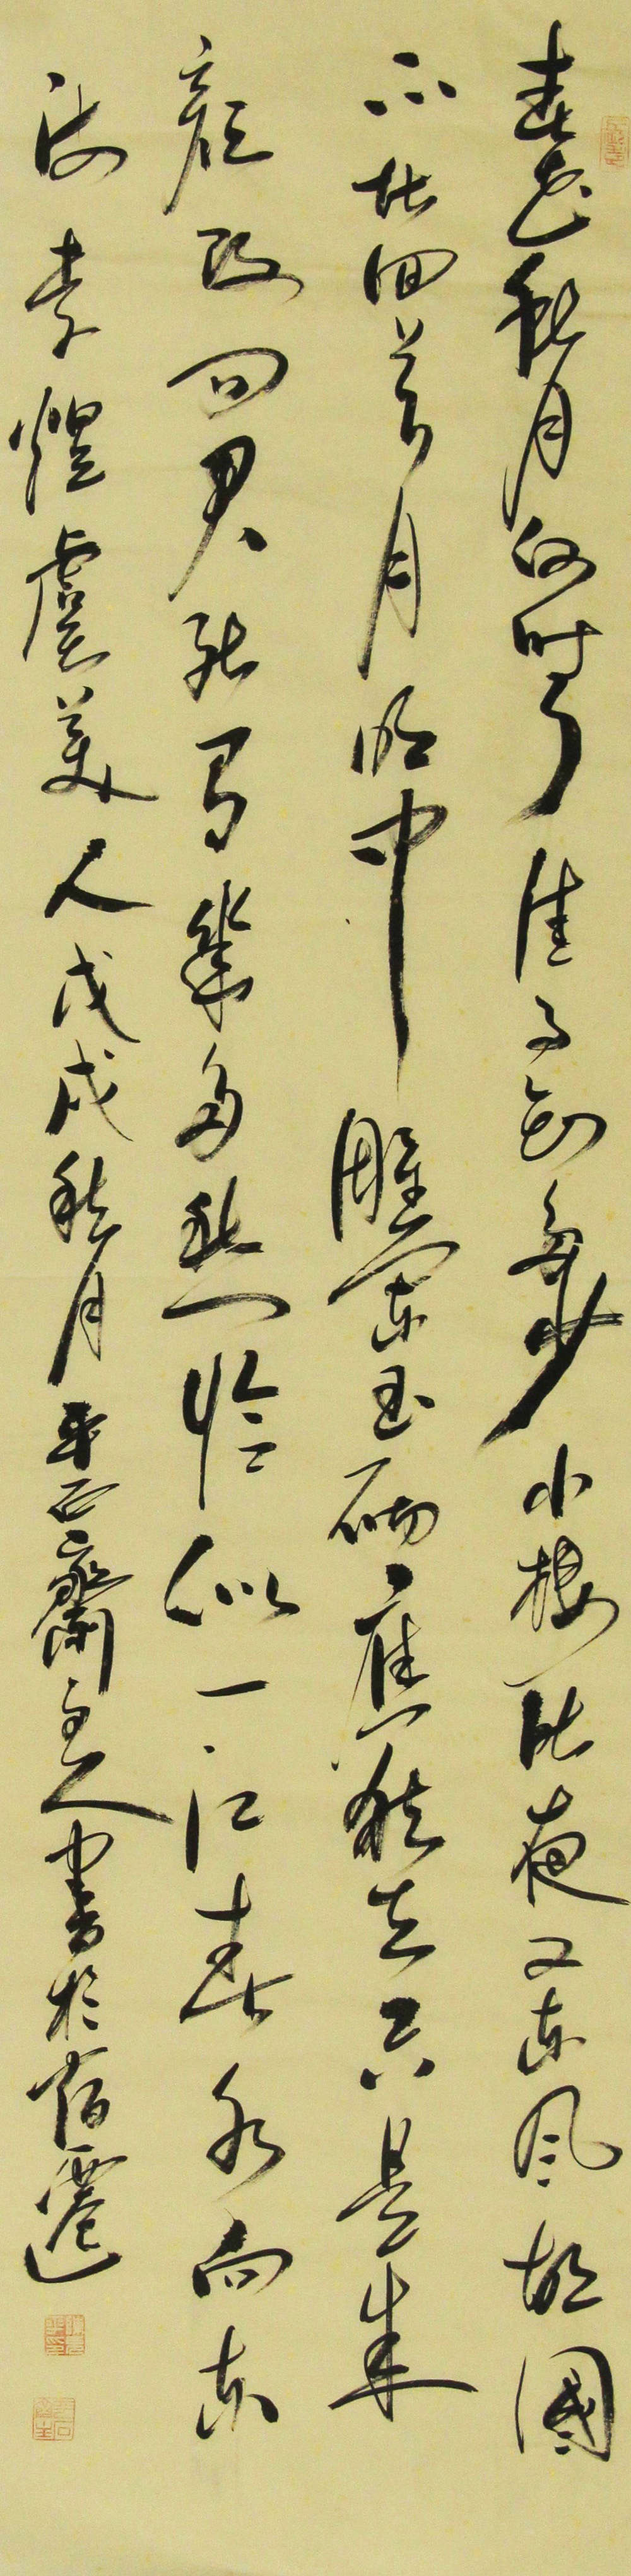 春花秋月何时了往事知多少小楼昨夜又东风故国
不堪回首月明中雕阑玉砌应犹在只是朱
颜改问君能有几多愁恰似一江春水向东
流李煜虞美人戊戌秋月 齋主人书於宿遷